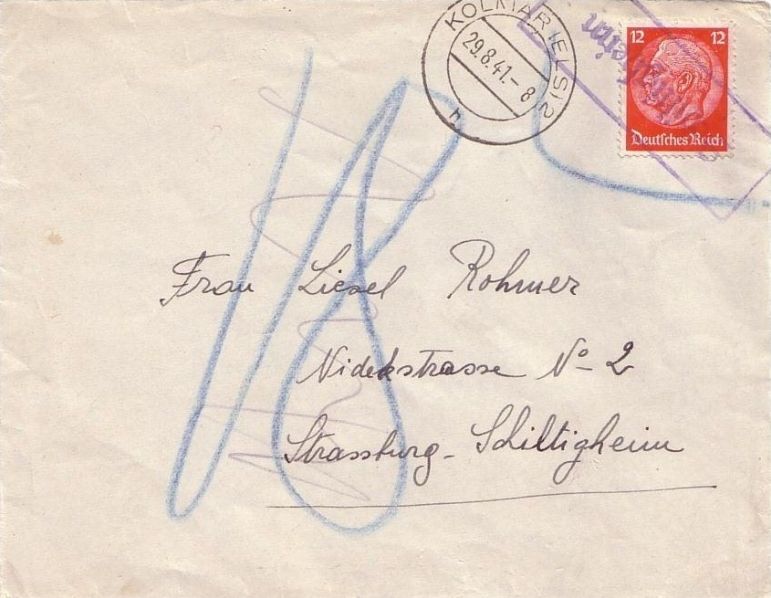 KOLMAR (ELS) 2
29.8.41.-8
h
12 12
Deutsches Reich
18
Frau Liesel Rohmer
Nidekstrasse No 2
Strassburg - Schiltigheim